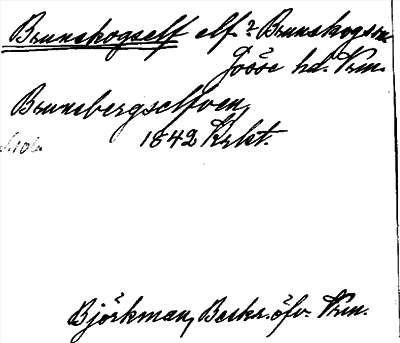 Brunskogself elf i Brunskogs sn.
Jösse hd. Vrm.
Brunsbergselfven,
1842 Krkt.
Björkman, Beskr. öfv. Vrm.